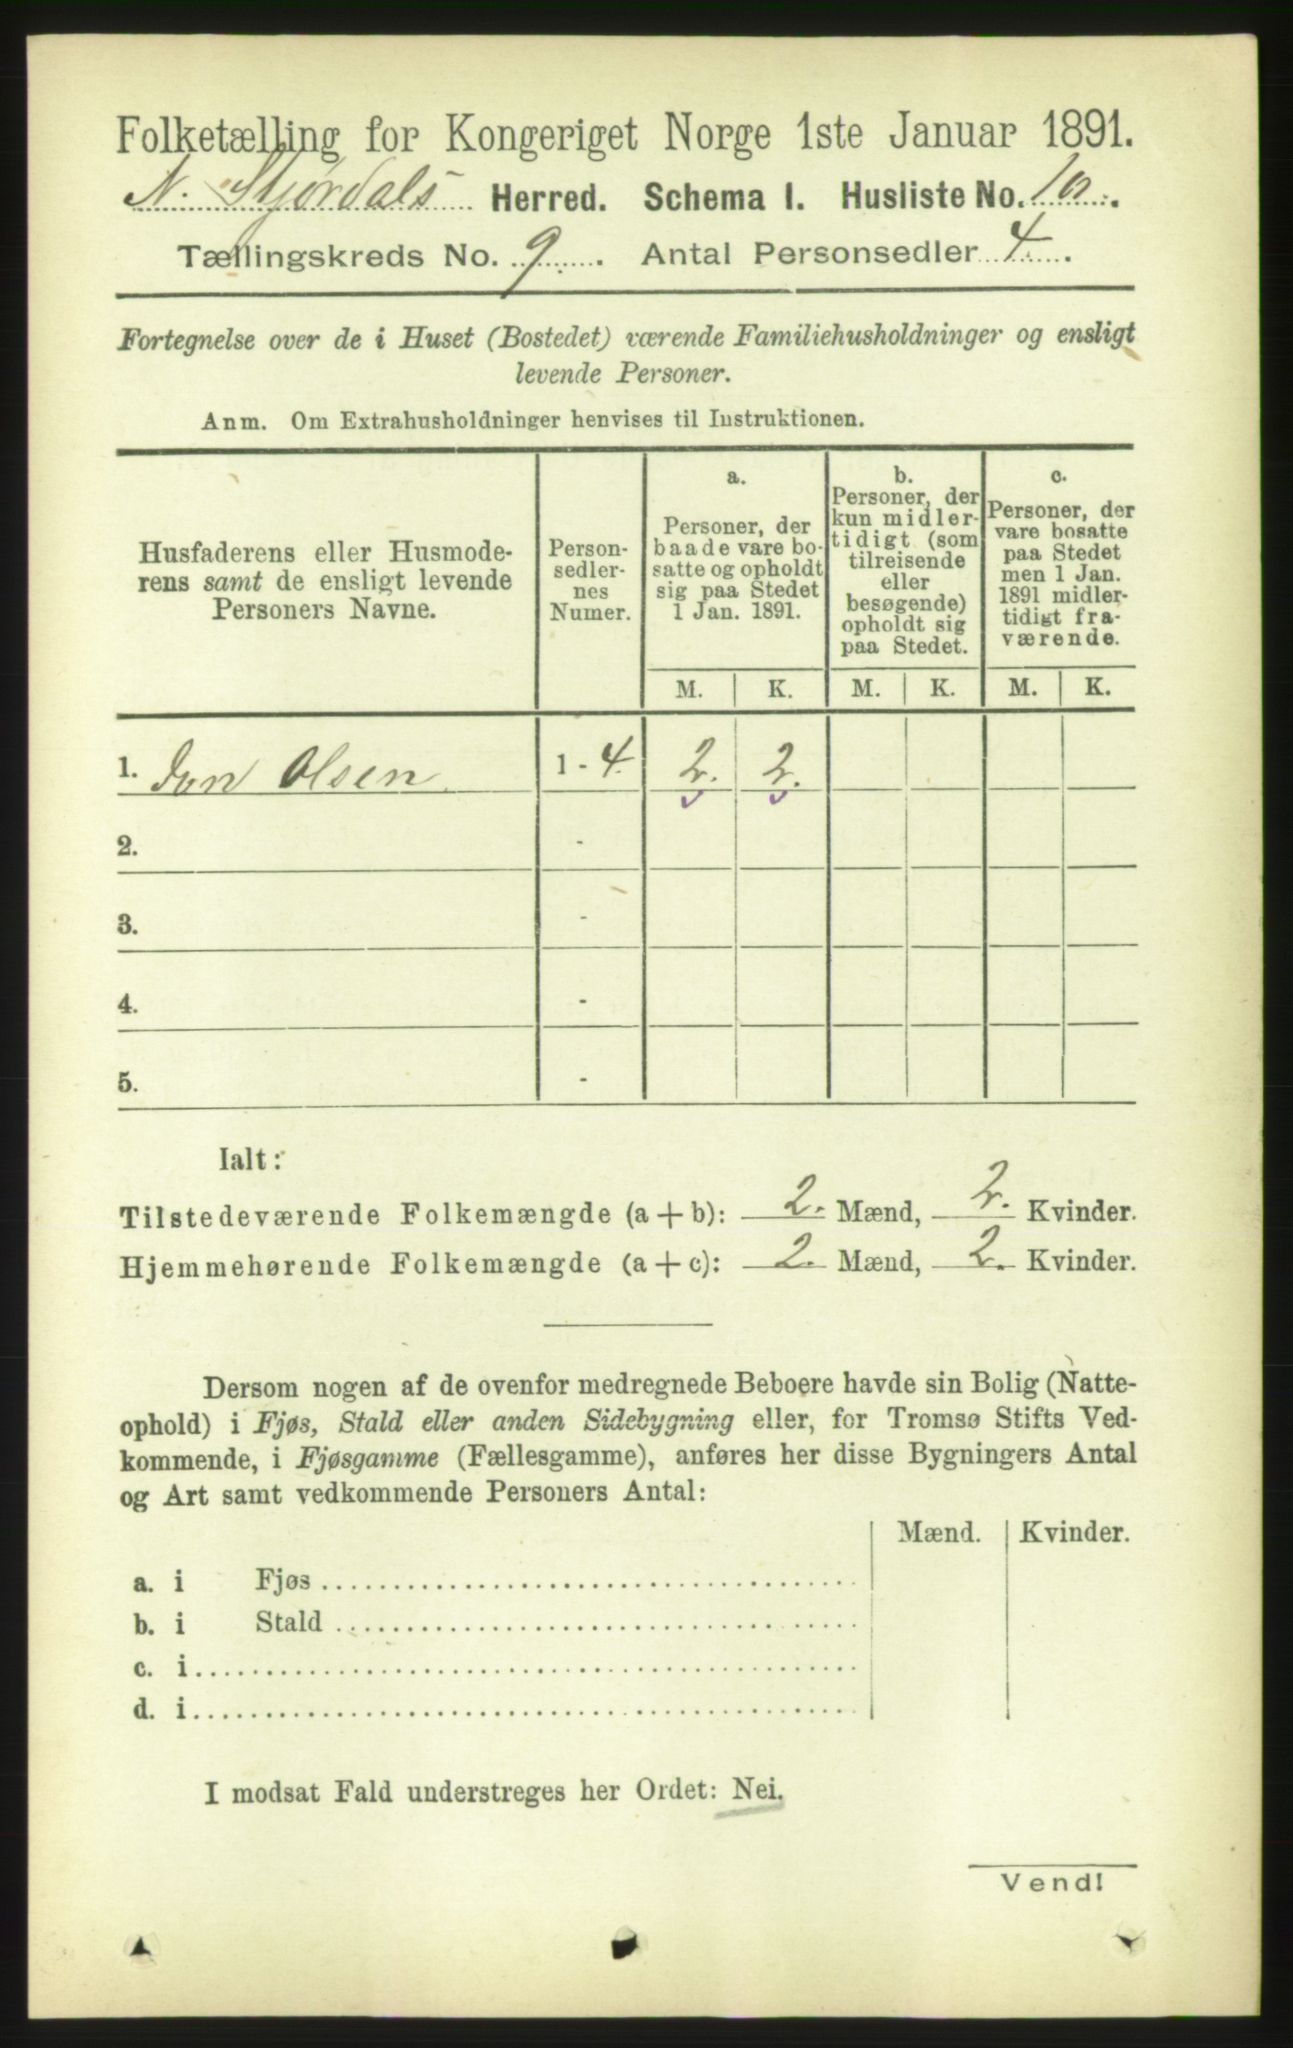 Folketælling for Kongeriget Norge 1ste Januar 1891.
N. Stjørdals Herred. Schema I. Husliste No. 10.
Tællingskreds No. 9. Antal Personsedler 4.
Fortegnelse over de i Huset (Bostedet) værende Familiehusholdninger og ensligt
levende Personer.
Anm. Om Extrahusholdninger henvises til Instruktionen.
Husfaderens eller Husmode-
rens samt de ensligt levende
Personers Navne.
Person-
sedler-
nes
Numer.
a.
Personer, der
baade vare bo-
satte og opholdt
sig paa Stedet
1 Jan. 1891.
b.
Personer, der
kun midler-
tidigt (som
tilreisende
eller
besøgende)
opholdt sig
paa Stedet.
c.
Personer, der
vare bosatte
paa Stedet
men 1 Jan.
1891 midler-
tidigt fra-
værende.
M. K. M. K. M. K.
1. Jon Olsen 1 - 4. 2. 2.
2. -
3. -
4. -
5. -
Ialt:
Tilstedeværende Folkemængde (a + b): 2. Mænd, 2. Kvinder.
Hjemmehørende Folkemængde (a + c): 2. Mænd, 2. Kvinder.
Dersom nogen af de ovenfor medregnede Beboere havde sin Bolig (Natte-
ophold) i Fjøs, Stald eller anden Sidebygning eller, for Tromsø Stifts Ved-
kommende, i Fjøsgamme (Fællesgamme), anføres her disse Bygningers Antal
og Art samt vedkommende Personers Antal:
Mænd. Kvinder.
a. i Fjøs
b. i Stald
c. i
d. i
I modsat Fald understreges her Ordet: Nei.
Vend!